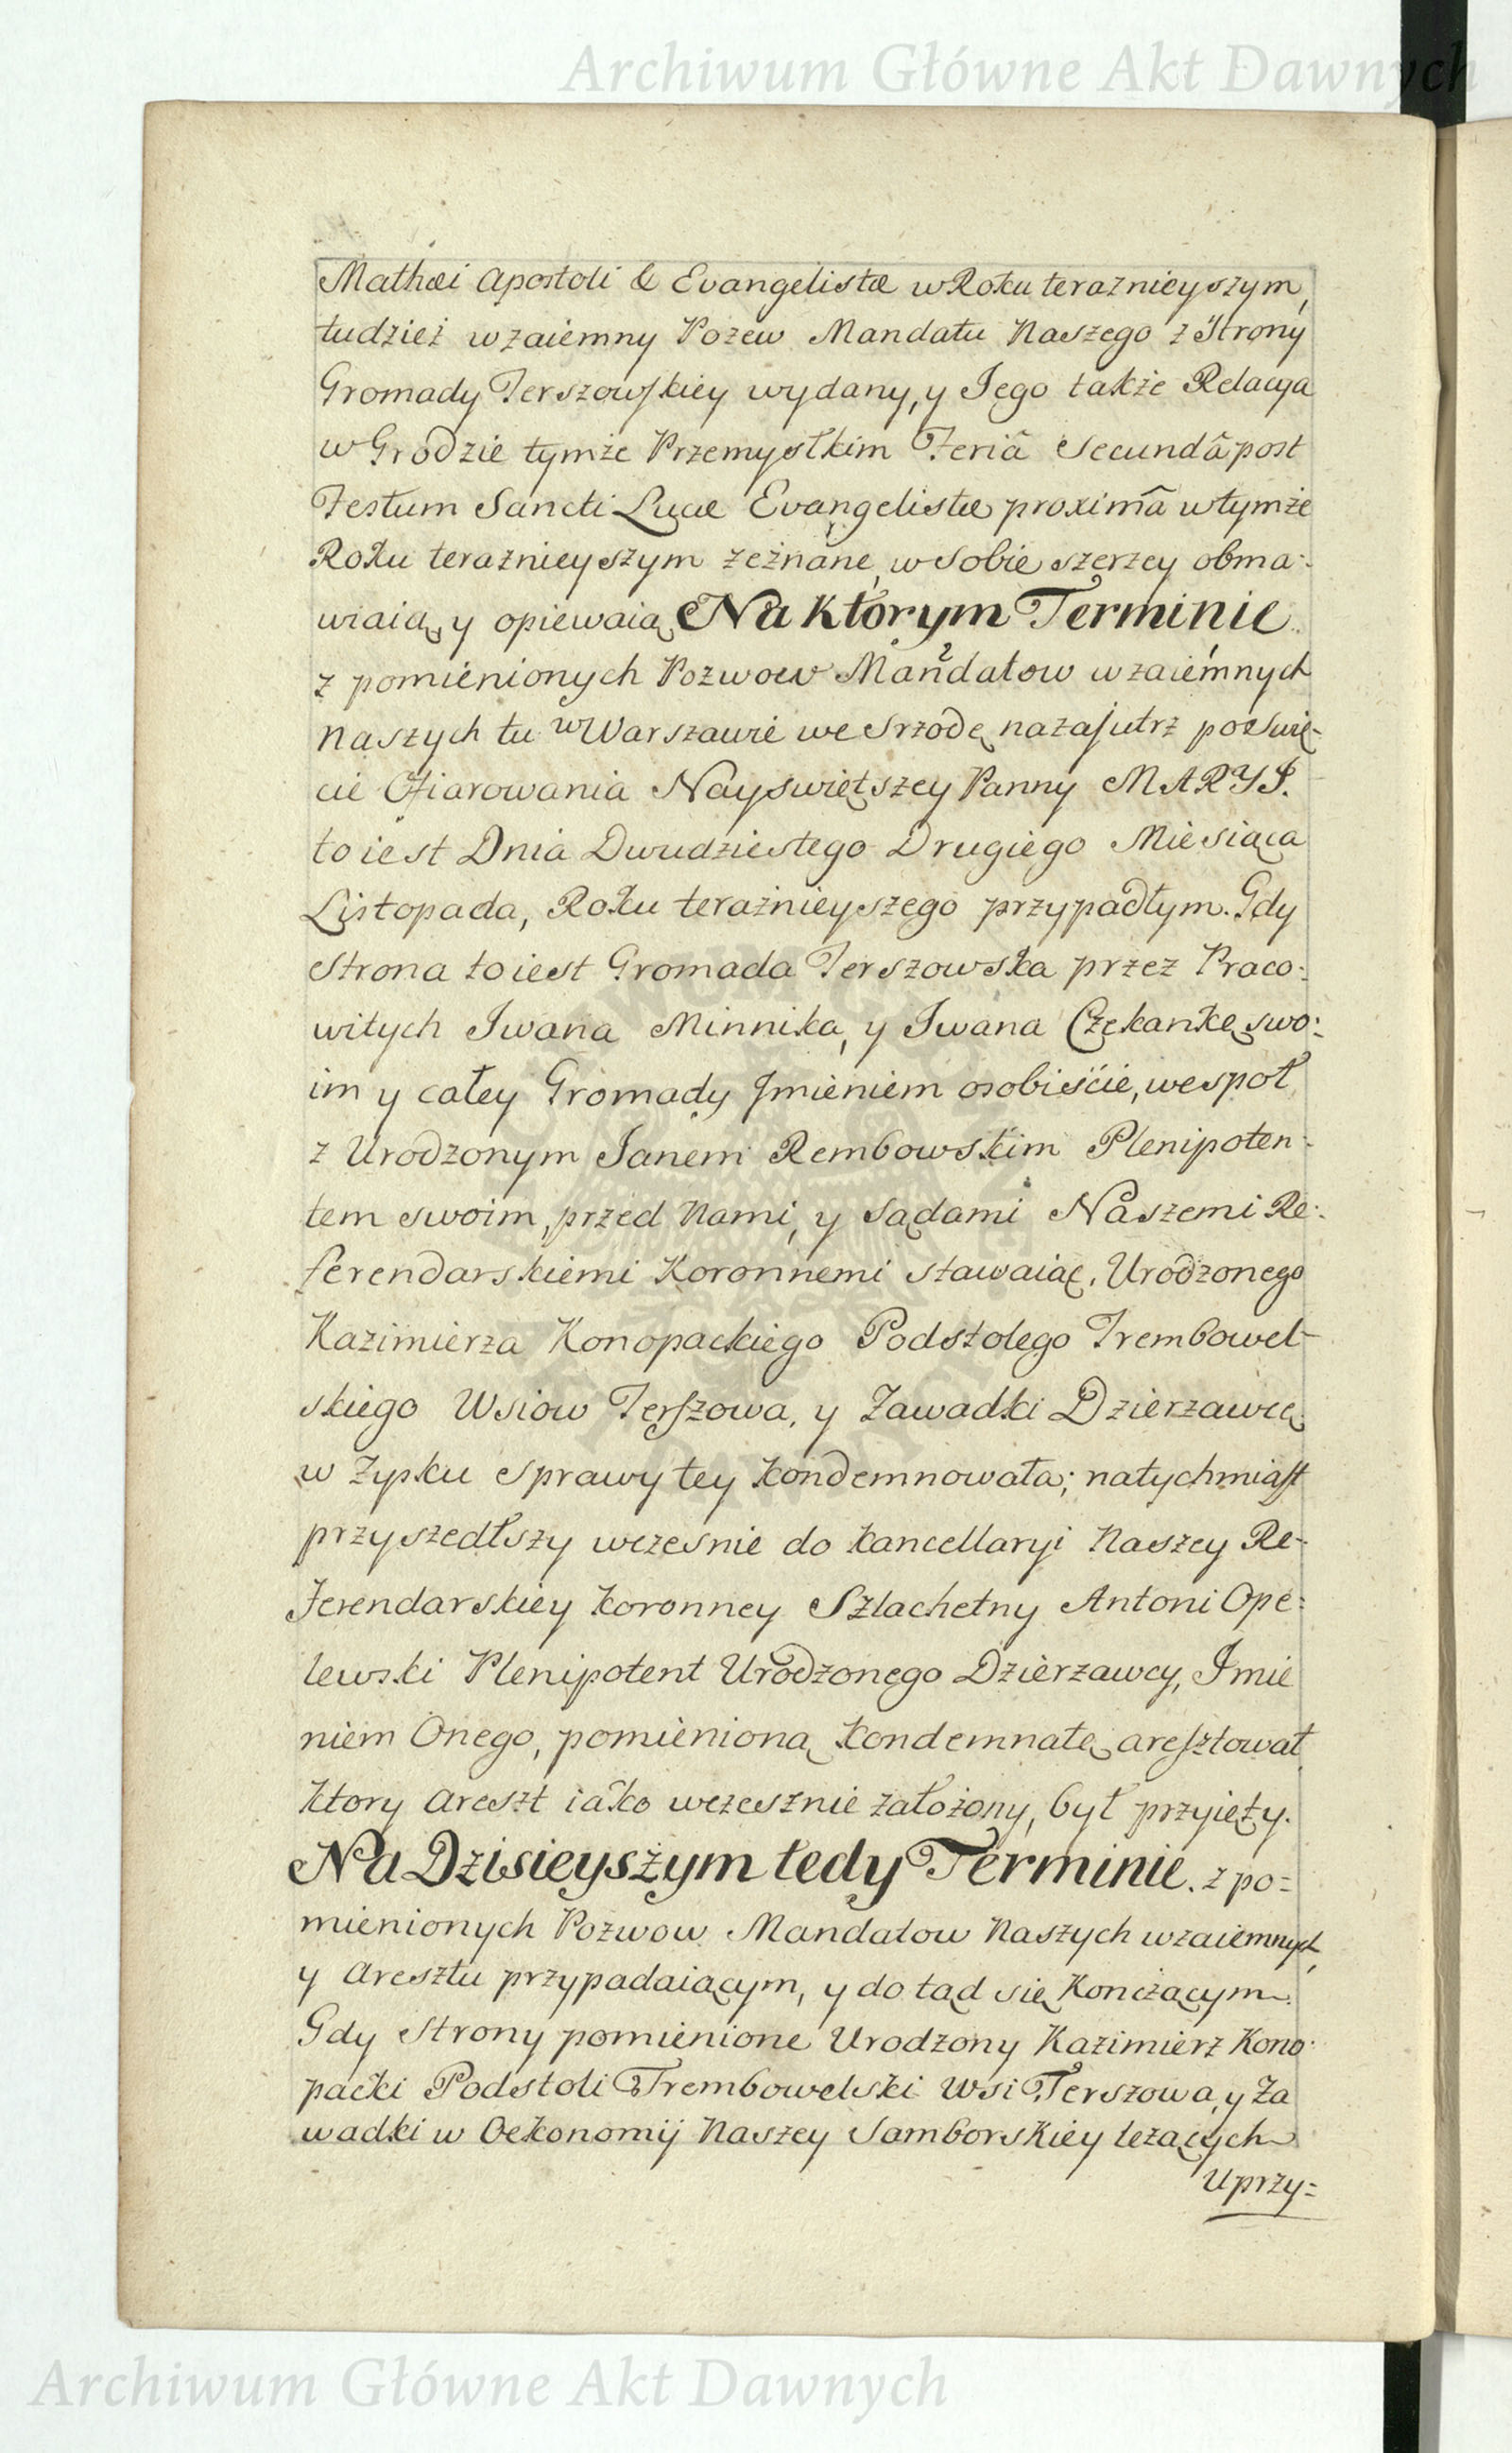 Archiwum Główne Akt Dawnych
Mathæi Apostoli & Evangelistæ w Roku teraznieyszym,
tudzież wzaiemny Pozew Mandatu Naszego z Strony
Gromady Terszowskiey wydany, y Jego także Relacya
w Grodzie tymże Przemyslkim Feriâ Secundâ post
Festum Sancti Lucæ Evangelistæ proximâ w tymże
Roku teraznieyszym zeznane, w Sobie szerzey obma-
wiaią, y opiewaią. Na Ktorym Terminie
z pomienionych Pozwow Mandatow wzaiemnych
Naszych tu w Warszawie we Srzodę nazajutrz po Swię-
cie Ofiarowania Nayswiętszey Panny MARYI.
to iest Dnia Dwudziestego Drugiego Miesiąca
Listopada, Roku teraźnieyszego przypadłym. Gdy
Strona to iest Gromada Terszowska przez Praco-
witych Iwana Minnika, y Iwana Czekankę swo-
im y całey Gromady Imieniem osobiście, wespoł
z Urodzonym Janem Rembowskim Plenipoten-
tem swoim, przed Nami, y Sądami Naszemi Re-
ferendarskiemi Koronnemi stawaiąc, Urodzonego
Kazimierza Konopackiego Podstolego Trembowel-
skiego Wsiow Terszowa, y Zawadki Dzierzawcę
w Zysku Sprawy tey kondemnowała; natychmiast
przyszedłszy wczesnie do Kancellaryi Naszey Re-
ferendarskiey Koronney Szlachetny Antoni Ope-
lewski Plenipotent Urodzonego Dzierzawcy, Imie
niem Onego, pomienioną Kondemnatę aresztował
Ktory Areszt iako wczesznie założony, był przyięty.
Na Dzisieyszym tedy Terminie. z po-
mienionych Pozwow Mandatow Naszych wzaiemnych,
y Aresztu przypadaiącym, y do tąd się Kończącym.
Gdy Strony pomienione Urodzony Kazimierz Kono-
packi Podstoli Trembowelski Wsi Terszowa, y Za
wadki w Oekonomij Naszey Samborskiey leżących
Uprzy-
Archiwum Główne Akt Dawnych